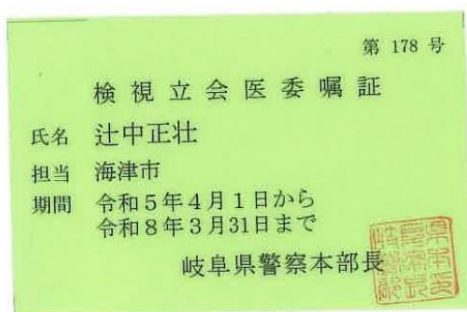 第 178 号
検視立会医委嘱証
氏名 辻中正壮
担当 海津市
期間 令和5年4月1日から
令和8年3月31日まで
岐阜県警察本部長